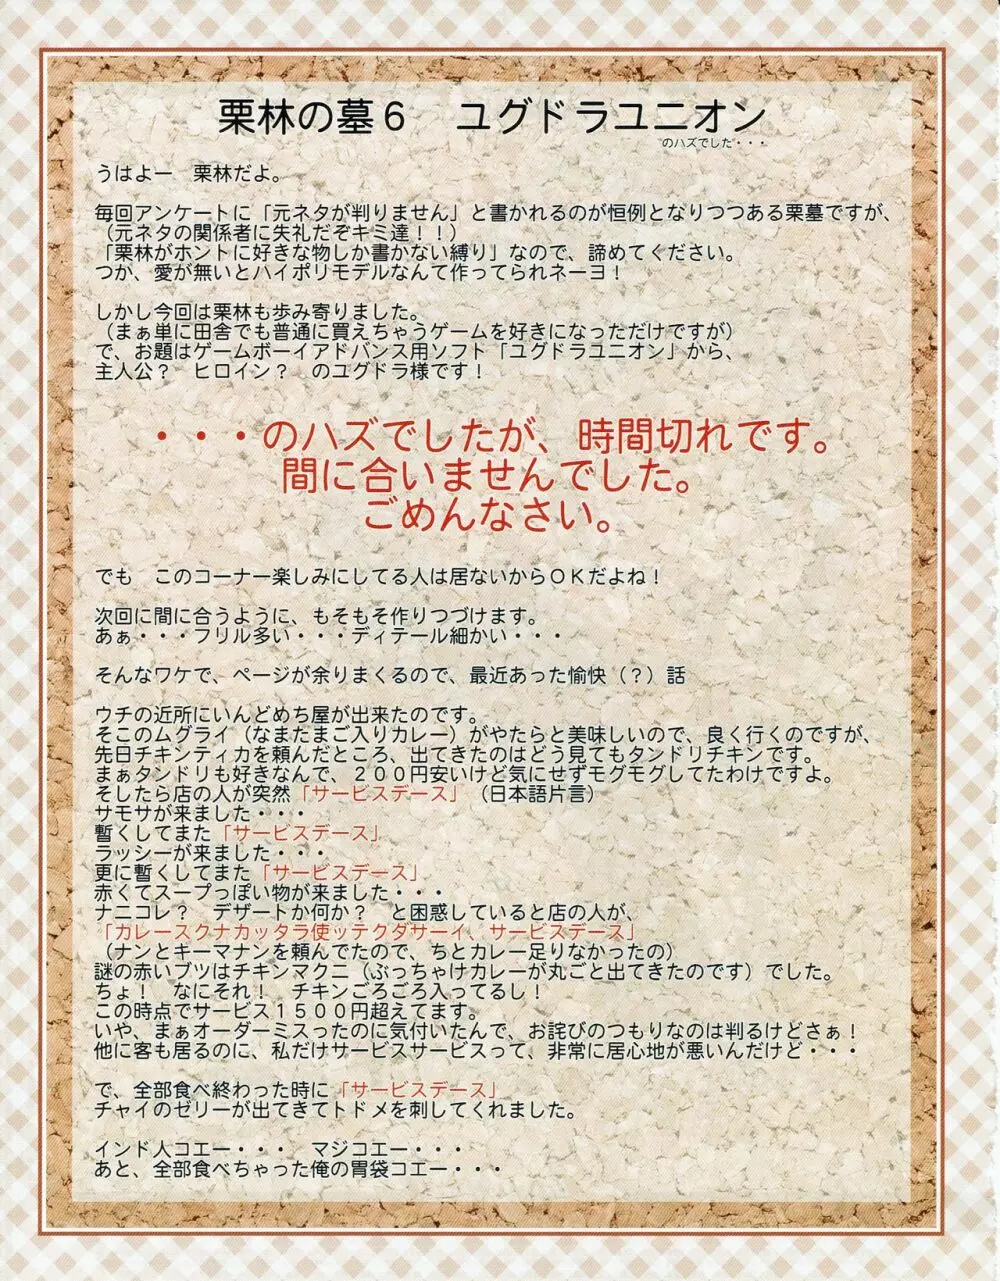 栗林の墓６　ユグドラユニオン
のハズでした・・・
うはよー　栗林だよ。
毎回アンケートに「元ネタが判りません」と書かれるのが恒例となりつつある栗墓ですが、
（元ネタの関係者に失礼だぞキミ達！！）
「栗林がホントに好きな物しか書かない縛り」なので、諦めてください。
つか、愛が無いとハイポリモデルなんて作ってられネーヨ！
しかし今回は栗林も歩み寄りました。
（まぁ単に田舎でも普通に買えちゃうゲームを好きになっただけですが）
で、お題はゲームボーイアドバンス用ソフト「ユグドラユニオン」から、
主人公？　ヒロイン？　のユグドラ様です！
・・・のハズでしたが、時間切れです。
間に合いませんでした。
ごめんなさい。
でも　このコーナー楽しみにしてる人は居ないからＯＫだよね！
次回に間に合うように、もそもそ作りつづけます。
あぁ・・・フリル多い・・・ディテール細かい・・・
そんなワケで、ページが余りまくるので、最近あった愉快（？）話
ウチの近所にいんどめち屋が出来たのです。
そこのムグライ（なまたまご入りカレー）がやたらと美味しいので、良く行くのですが、
先日チキンティカを頼んだところ、出てきたのはどう見てもタンドリチキンです。
まぁタンドリも好きなんで、２００円安いけど気にせずモグモグしてたわけですよ。
そしたら店の人が突然「サービスデース」（日本語片言）
サモサが来ました・・・
暫くしてまた「サービスデース」
ラッシーが来ました・・・
更に暫くしてまた「サービスデース」
赤くてスープっぽい物が来ました・・・
ナニコレ？　デザートか何か？　と困惑していると店の人が、
「カレースクナカッタラ使ッテクダサーイ、サービスデース」
（ナンとキーマナンを頼んでたので、ちとカレー足りなかったの）
謎の赤いブツはチキンマクニ（ぶっちゃけカレーが丸ごと出てきたのです）でした。
ちょ！　なにそれ！　チキンごろごろ入ってるし！
この時点でサービス１５００円超えてます。
いや、まぁオーダーミスったのに気付いたんで、お詫びのつもりなのは判るけどさぁ！
他に客も居るのに、私だけサービスサービスって、非常に居心地が悪いんだけど・・・
で、全部食べ終わった時に「サービスデース」
チャイのゼリーが出てきてトドメを刺してくれました。
インド人コエー・・・　マジコエー・・・
あと、全部食べちゃった俺の胃袋コエー・・・